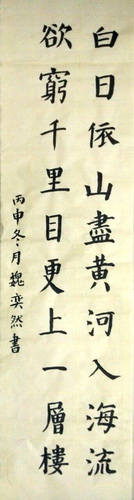 白日依山盡黃河入海流
欲窮千里目更上一層樓
丙申冬月魏奕然書